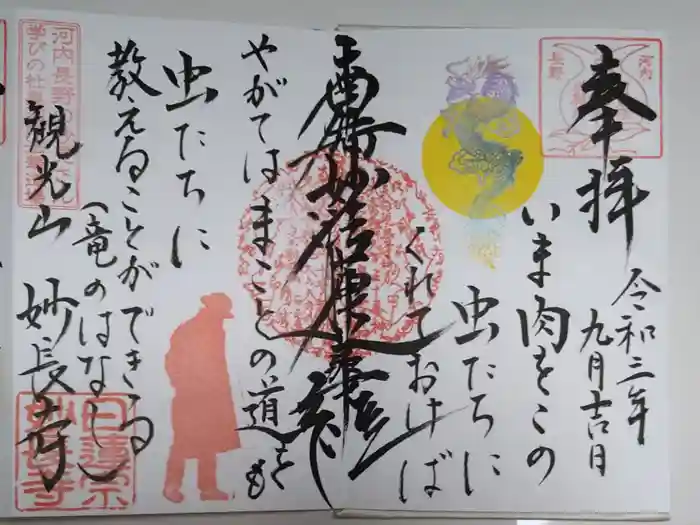 奉拝
河内
長野
令和三年
九月吉日
いま肉をこの
虫たちに
くれておけば
南無妙法蓮華経
やがてはまことの道をも
虫たちに
教えることができる
(竜のはなし)
観光山 妙長寺
日蓮宗
妙長寺